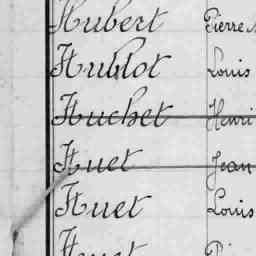 Hubert Pierre
Hublot Louis
Huchet Henri
Huet Jean
Huet Louis
Huet